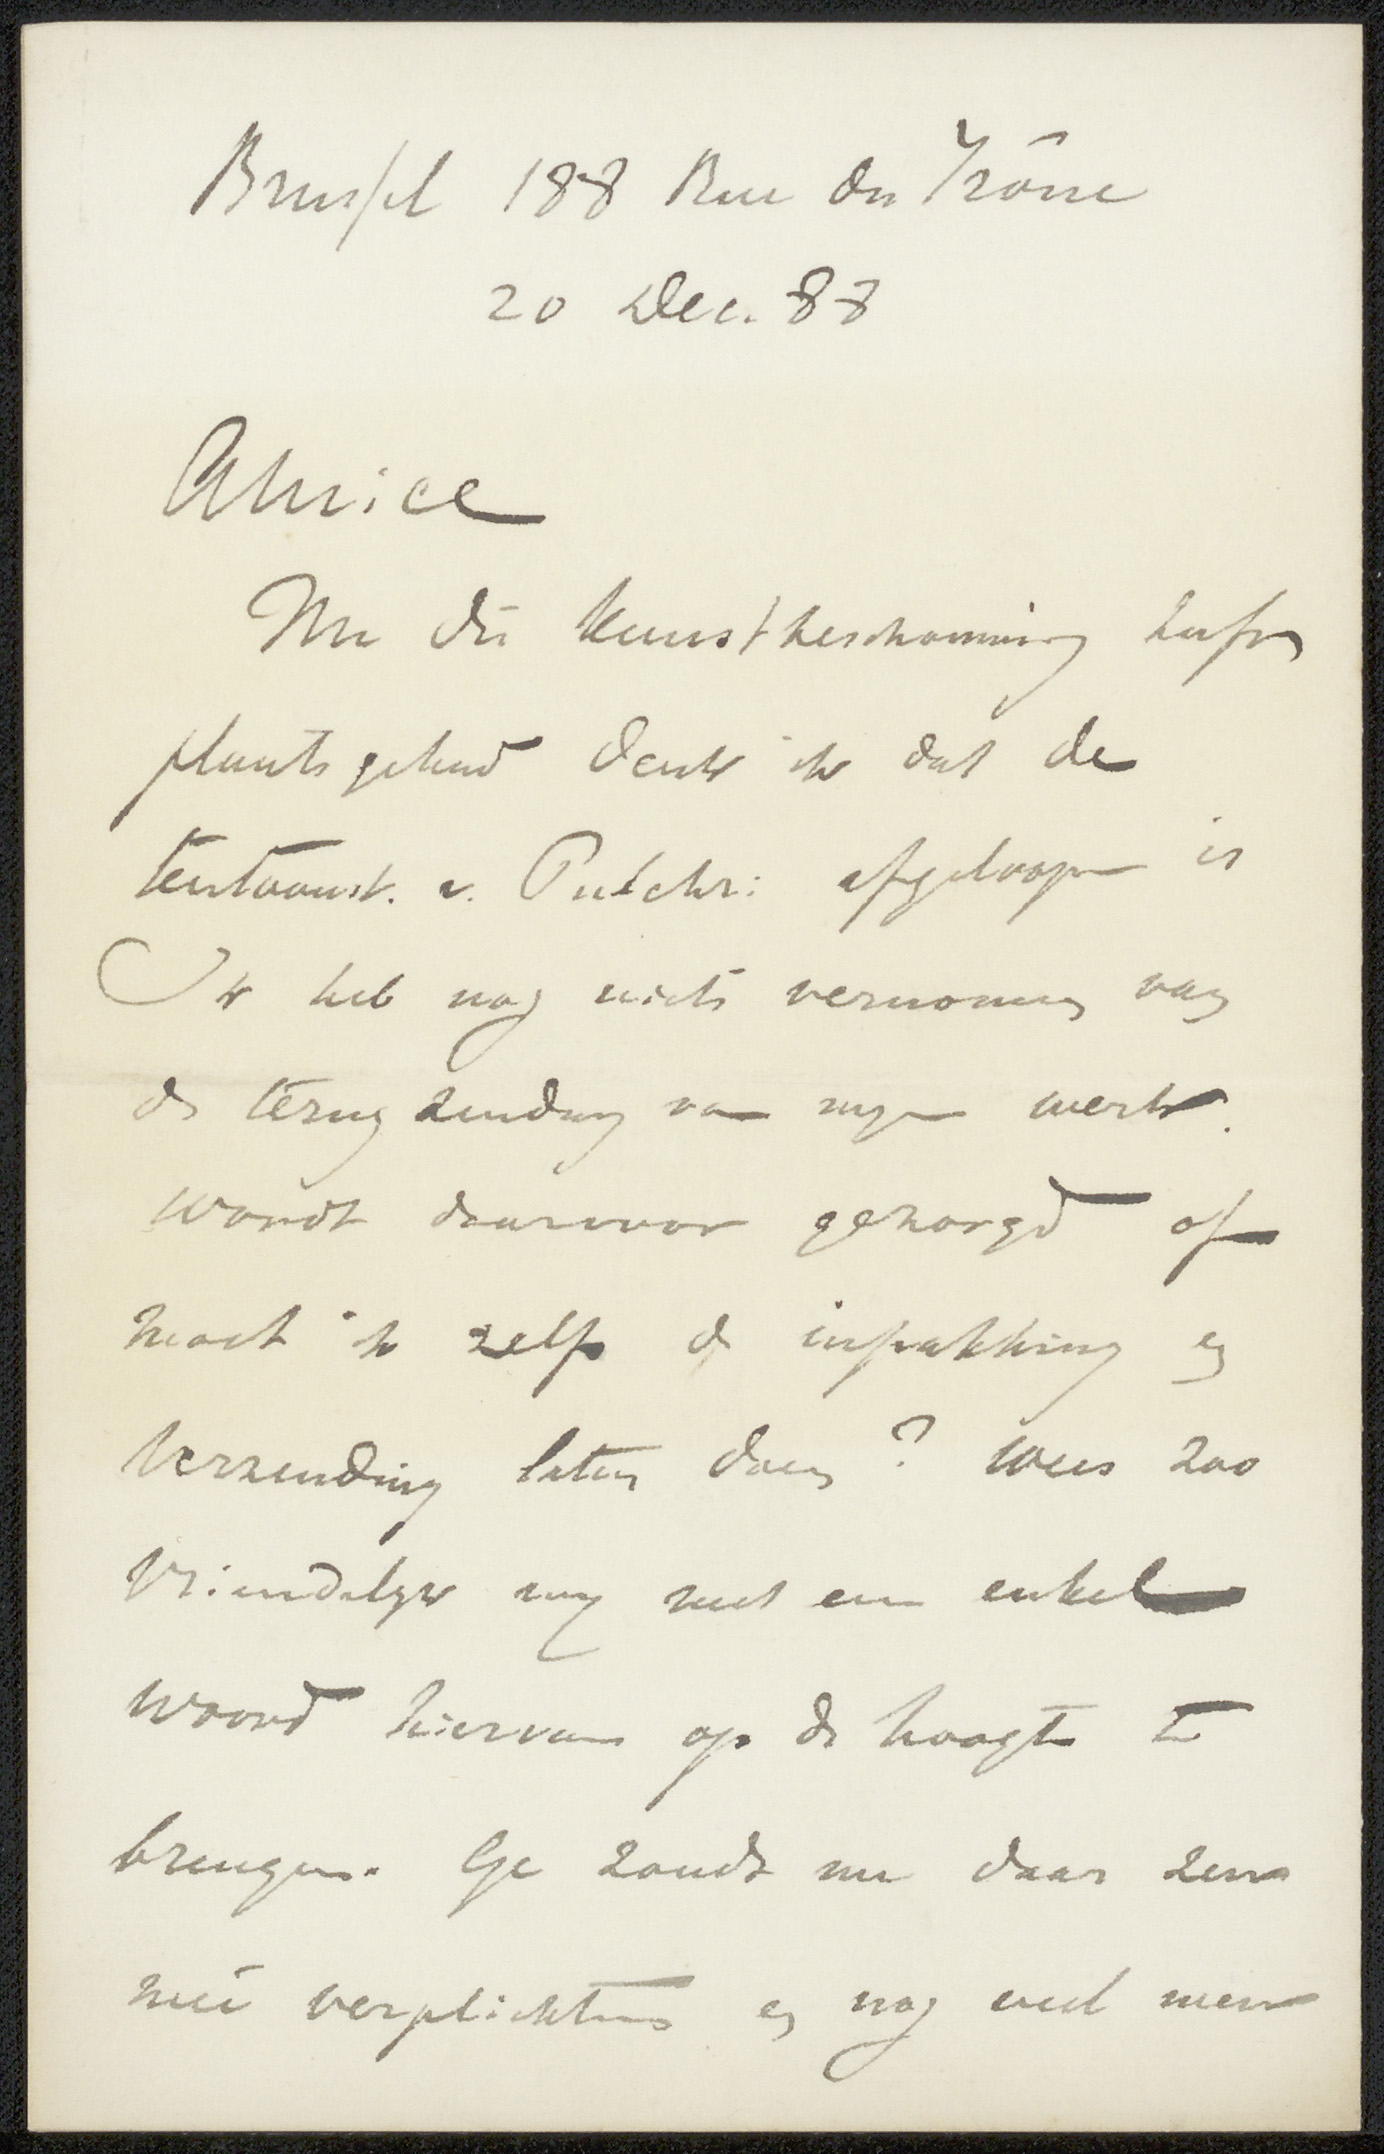 Brussel 188 Rue du Trône
20 Dec. 88
Amice
Nu die kunstbeschouwing heeft
plaats gehad denk ik dat de
tentoonst. v. Pulchri afgeloopen is
Ik heb nog niets vernomen van
de terugzending van mijn werk.
Wordt daarvoor gezorgd of
moet ik zelf de inpakking en
verzending laten doen? Wees zoo
vriendelijk mij met een enkel
woord hiervan op de hoogte te
brengen. Ge zoudt me daar zeer
mee verplichten en nog veel meer